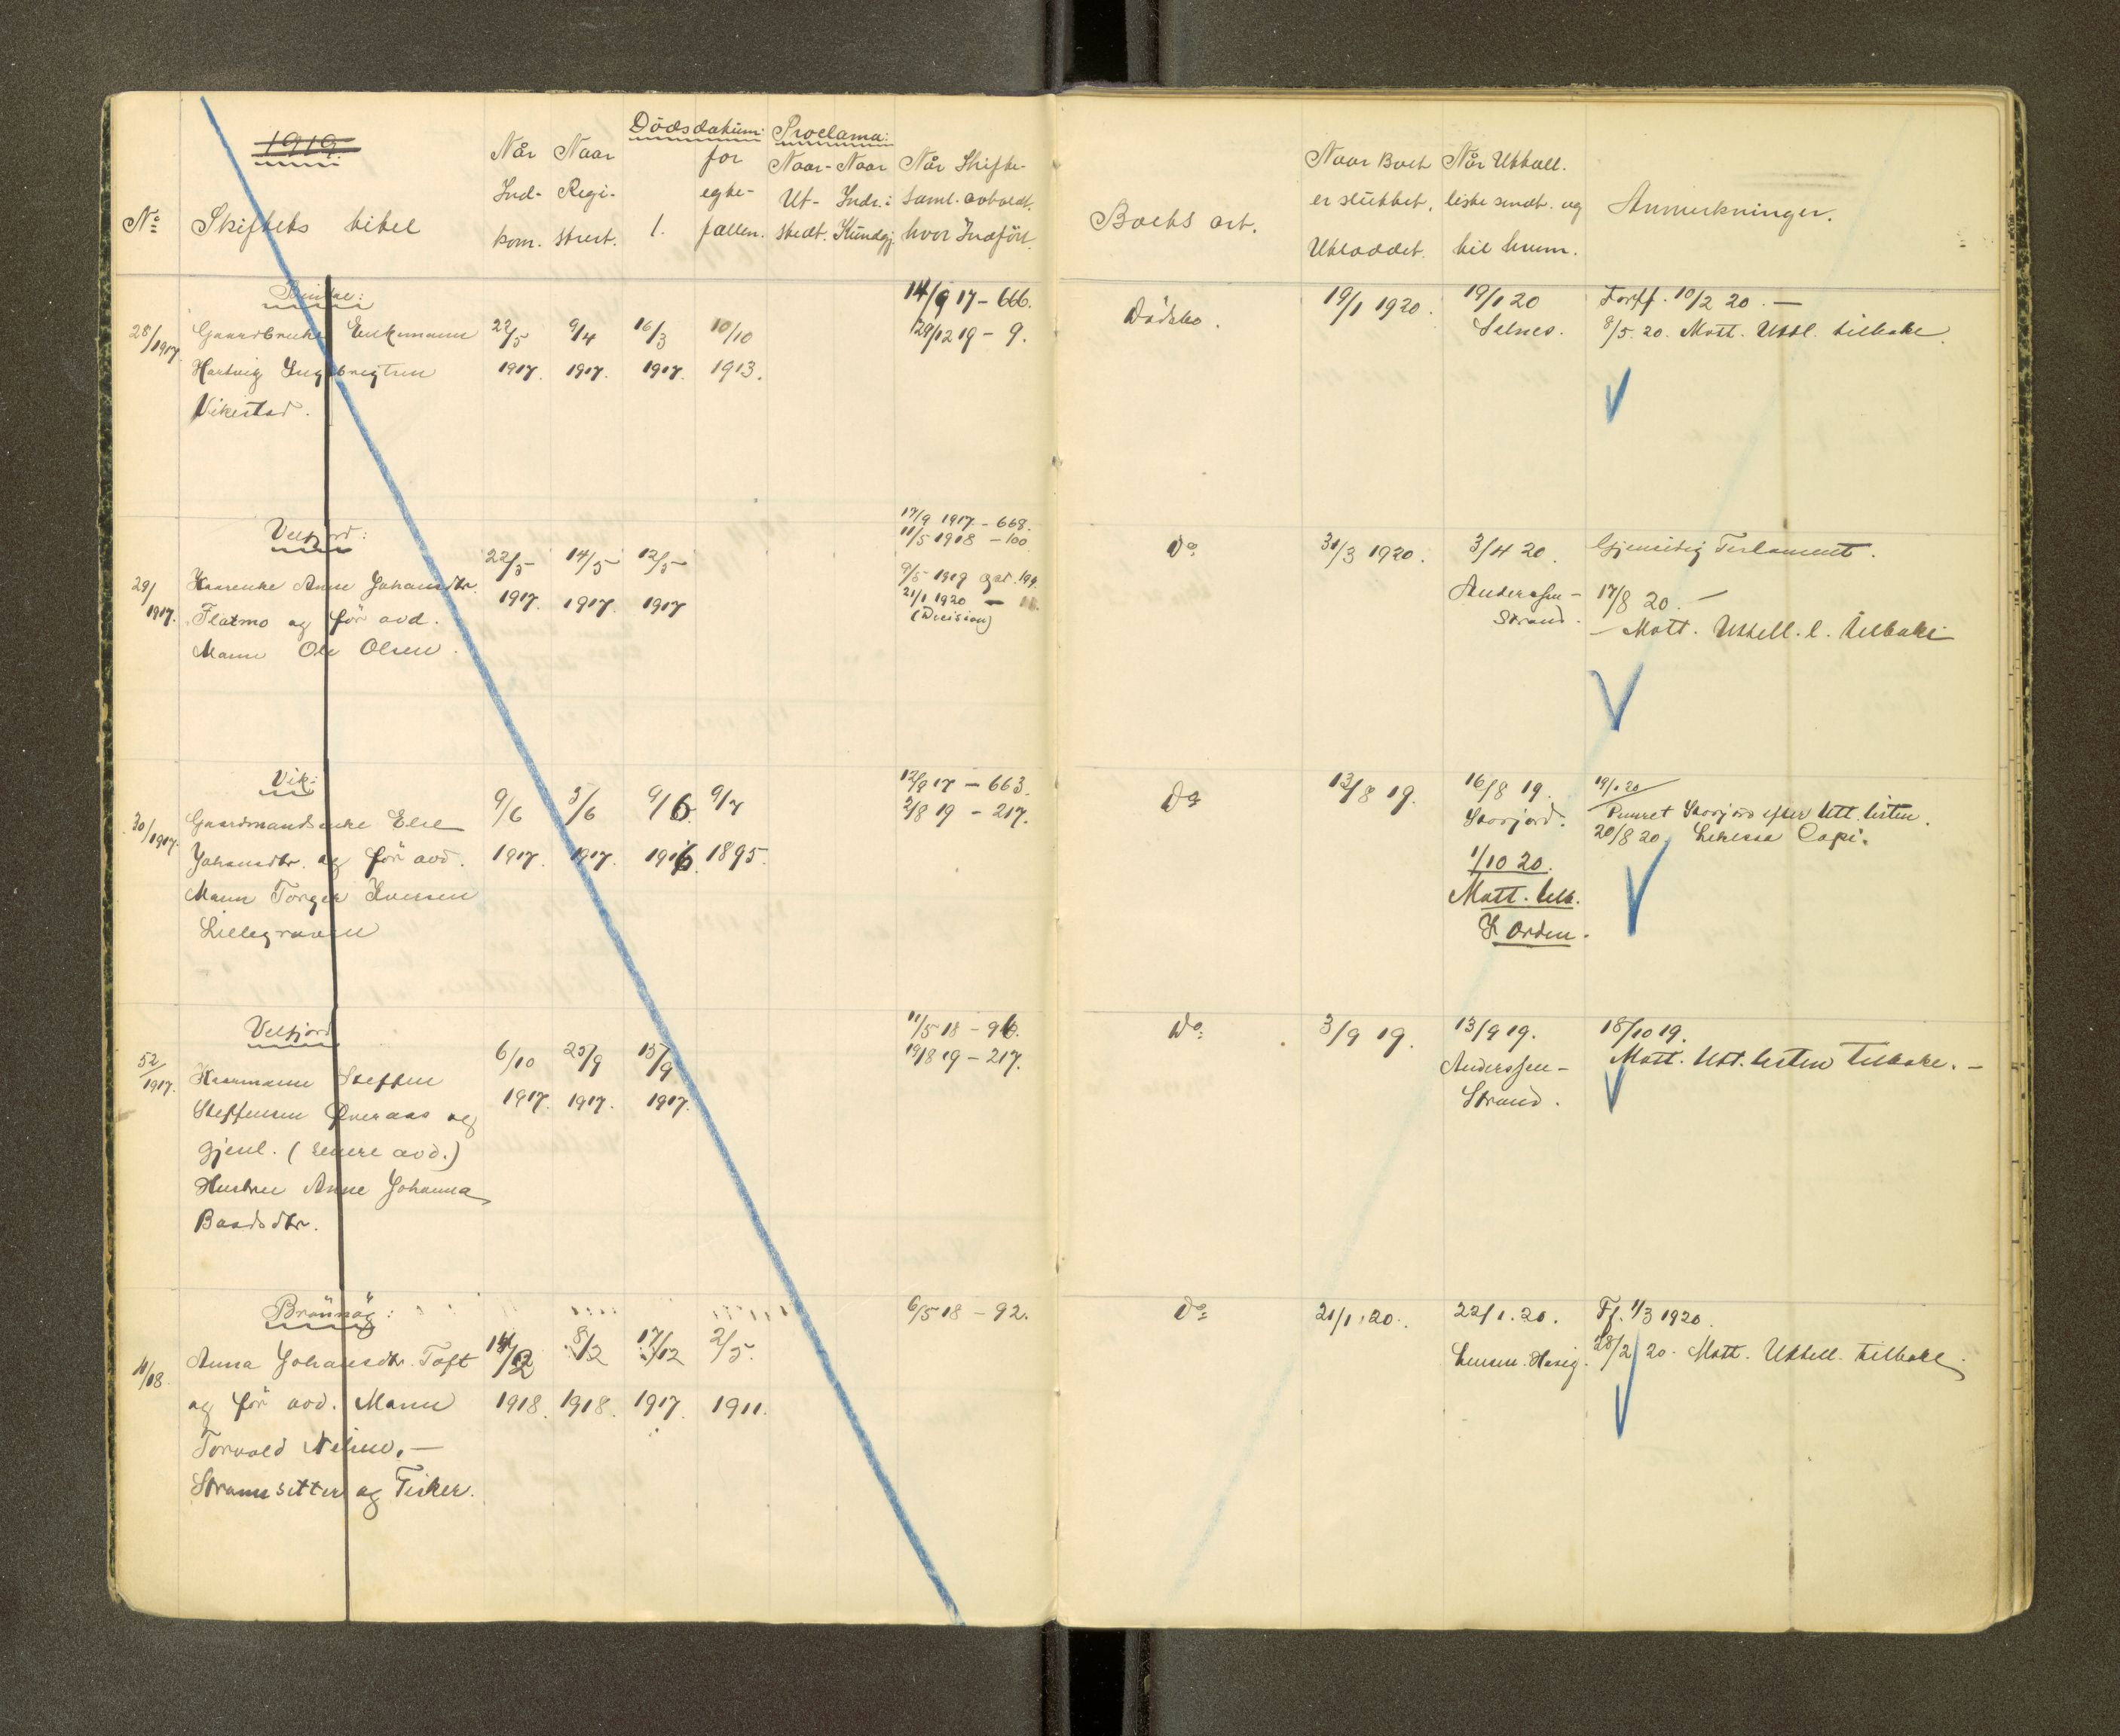 1919
Nº
Skiftets titel
Når Ind- kom.
Naar Regi- strert.
Dödsdatum:
1.
for egte- fællen.
Proclama:
Naar Ut- stedt.
Naar Indr.: Kundgj.
Når Skifte- saml. avholdt. hvor Indført.
Boets art.
Naar Boet er sluttet, Utloddet.
Når Utball. liste sendt. og til hvem.
Anmerkninger.
28/1917.
Gaardbruker Enkemann
Hartvig Ingebrigtsen
Vikestad.
22/5 1917.
9/4 1917.
16/3 1917.
10/10 1913.
14/9 17 – 666.
29/12 19 – 9.
Dödsbo.
19/1 1920.
19/1 20
Salnes.
Forff. 10/2 20. —
8/5. 20. Mott. Uttl. tilbake.
Velfjord:
29/1917.
Kaarenke Anne Johansdtr.
Flatmo og för avd.
Mann Ole Olsen.
22/5 1917.
14/5 1917
12/5 1917
17/9 1917 – 668.
11/5 1918 – 100
9/5 1919 199.
21/1 1920 —
(Decision)
Do
31/3 1920.
3/4 20.
Anderssen-
Strand.
Gjensidig Testament.
17/8 20. —
— Mott. Uttell. l. tilbake
Vik:
30/1917.
Gaardmandsenke Else
Johansdtr. og för avd.
Mann Torger Iversen
Lillegraven
9/6 1917.
5/6 1917.
9/6 1916.
9/7 1895.
12/9 17 – 663.
2/8 19 – 217.
Do
13/8 19.
16/8 19.
Storjord.
1/10 20.
Mott. tilb.
I orden.
19/1 20
Purret Storjord efter Utt. listen.
20/8 20
Velfjord
52/1917.
Kaarmann Steffen
Steffensen Øveraas og
gjenl. (senere avd.)
Hustru Anne Johanna
Baadsdtr.
6/10 1917.
25/9 1917.
15/9 1917.
11/5 18 – 96.
19/8 19 – 217.
Do:
3/9 19.
13/9 19.
Anderssen-
Strand.
18/10 19.
Mott. Utt. listen tilbake. –
Brönnöy:
11/18.
Anna Johansdtr. Toft
og för avd. Mann
Torvald Nilsen. —
Strandsitter og Fisker.
14/2 1918.
8/2 1918.
17/12 1917.
2/5. 1911.
6/5 18 – 92.
Do
21/1. 20.
22/1. 20.
Ff. 1/3 1920.
28/2 20. Mott. Uttell. tilbake.